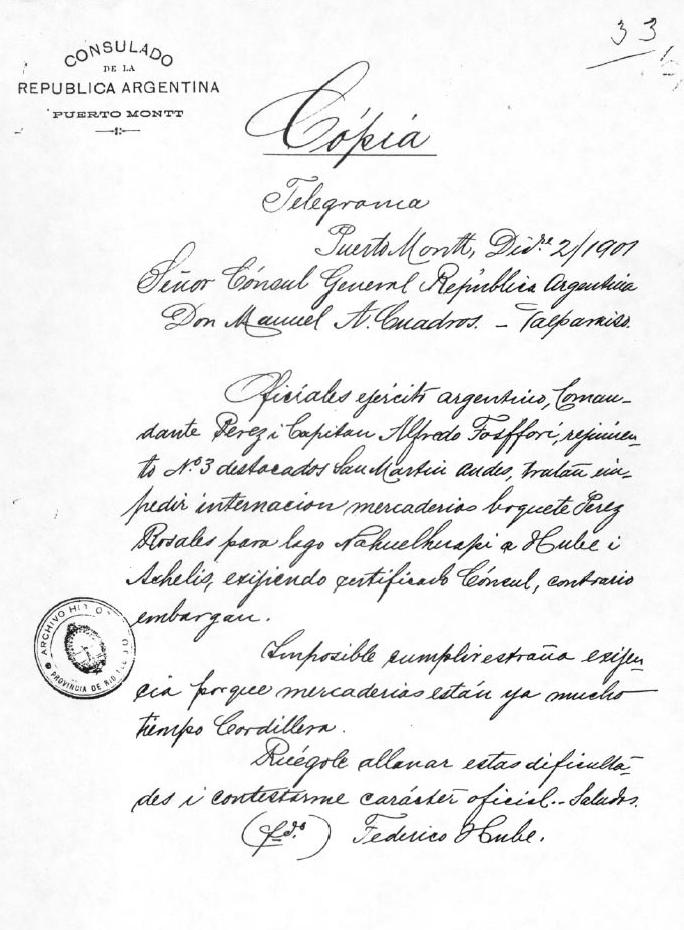 33
CONSULADO
DE LA
REPUBLICA ARGENTINA
PUERTO MONTT
Cópia
Telegrama
Puerto Montt, Dic.re 2/1901
Señor Cónsul General República Argentina
Don Manuel A. Cuadros. - Valparaiso.
Oficiales ejército argentino, Coman-
dante Perez i Capitan Alfredo Fosffori, rejimien-
to No. 3 destacados San Martin Andes, tratan im-
pedir internacion mercaderias boquete Perez
Rosales para lago Nahuelhuapi a Hube i
Achelis, exijiendo certificado Cónsul, contrario
embargan.
Imposible cumplir estraña exijen-
cia porque mercaderias están ya mucho
tiempo Cordillera.
Ruégole allanar estas dificulta-
des i contestarme carácter oficial.. Saludos.
(fdo.) Federico Hube.
ARCHIVO HI
PROVINCIA DE